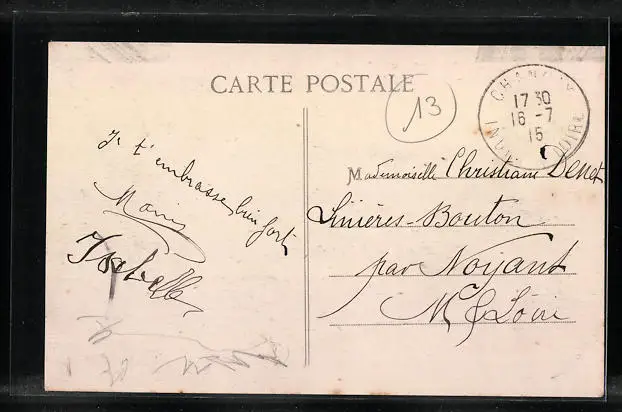 CARTE POSTALE
13
CHANÇAY
17 30
16 -7
15
INDRE ET LOIRE
Je t'embrasse bien fort
Isabelle
Mademoiselle Christiane Denet
Linières-Bouton
par Noyant
M & Loire